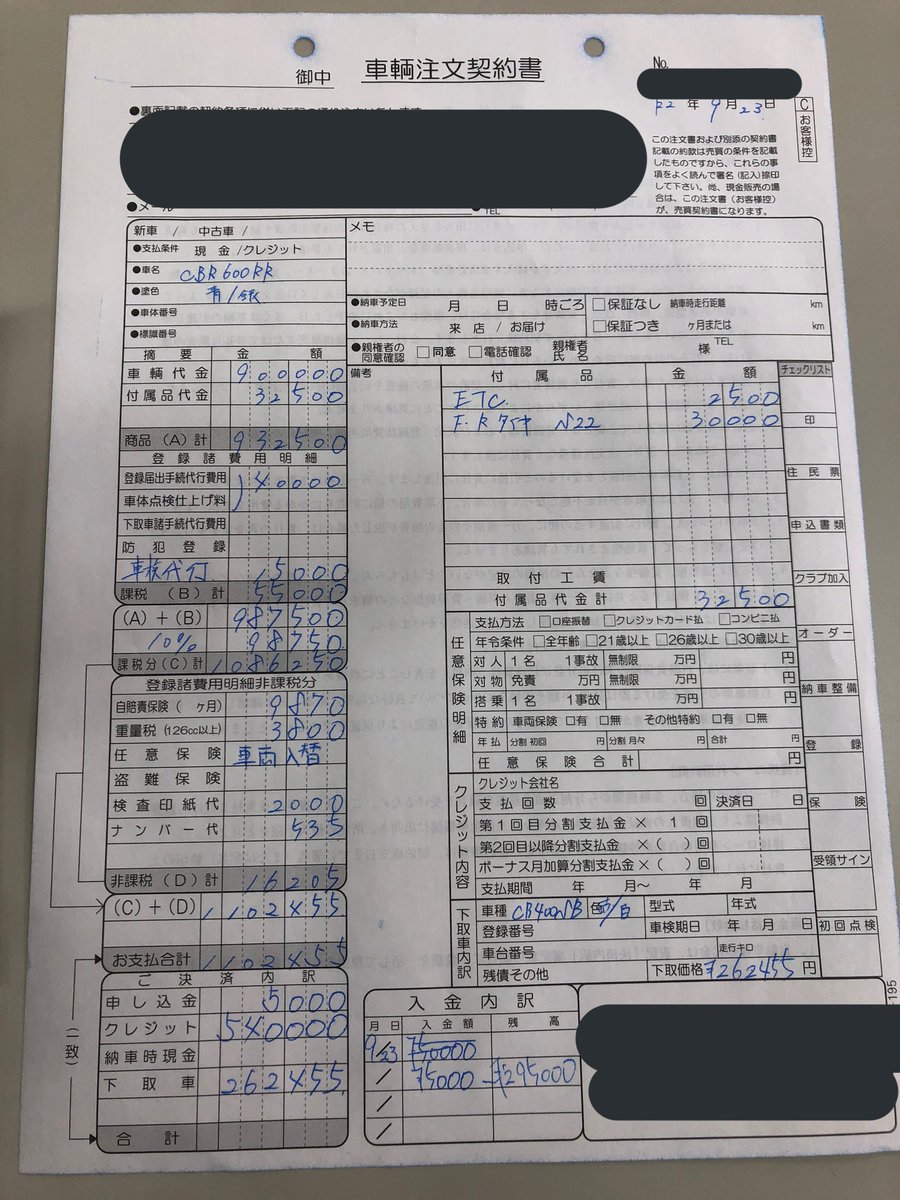 御中 車輌注文契約書
No.
R2 年 9月 23日
C お客様控
この注文書および別添の契約書
記載の約款は売買の条件を記載
したものですから、これらの事
項をよく読んで署名(記入)捺印
して下さい。尚、現金販売の場
合は、この注文書(お客様控)
が、売買契約書になります。
●メール
TEL
新車 / 中古車 /
●支払条件 現金/クレジット
●車名 CBR600RR
●塗色 青/銀
●車体番号
●標識番号
メモ
●納車予定日 月 日 時ごろ
●納車方法 来店 / お届け
□保証なし 納車時走行距離 km
□保証つき ヶ月または km
●親権者の同意確認 □同意 □電話確認 親権者氏名 様 TEL
摘要 金額
車輌代金 900000
付属品代金 32500
商品(A)計 932500
登録諸費用明細
登録届出手続代行費用
車体点検仕上げ料 40000
下取車諸手続代行費用
防犯登録
車検代行 15000
課税(B)計 55000
(A)+(B) 987500
10% 98750
課税分(C)計 1086250
登録諸費用明細非課税分
自賠責保険( ヶ月) 9870
重量税(126cc以上) 3800
任意保険 車両入替
盗難保険
検査印紙代 2000
ナンバー代 535
非課税(D)計 16205
(C)+(D) 1102455
お支払合計 1102455
ご決済内訳
申し込金 5000
クレジット 540000
納車時現金
下取車 262455
合計
(一致)
備考
付属品 金額
ETC 2500
F.R タイヤ S22 30000
取付工賃
付属品代金計 32500
任意保険明細
支払方法 □口座振替 □クレジットカード払 □コンビニ払
年令条件 □全年齢 □21歳以上 □26歳以上 □30歳以上
対人 1名 1事故 無制限 万円 円
対物 免責 万円 無制限 万円 円
搭乗 1名 1事故 万円 円
特約 車両保険 □有 □無 その他特約 □有 □無
年払 分割 初回 円 分割 月々 円 合計 円
任意保険合計 円
クレジット内容
クレジット会社名
支払回数 回 決済日 日
第1回目分割支払金 × 1 回
第2回目以降分割支払金 ×( ) 回
ボーナス月加算分割支払金 ×( ) 回
支払期間 年 月~ 年 月
下取車内訳
車種 CB400SB 色 青/白 型式 年式
登録番号 車検期日 年 月 日
車台番号 走行キロ
残債その他 下取価格 ¥262455 円
入金内訳
月日 入金額 残高
9/23 ¥50000
/ ¥5000 ¥295000
/
/
チェックリスト
印
住民票
申込書類
クラブ加入
オーダー
納車整備
登録
保険
受領サイン
初回点検
195